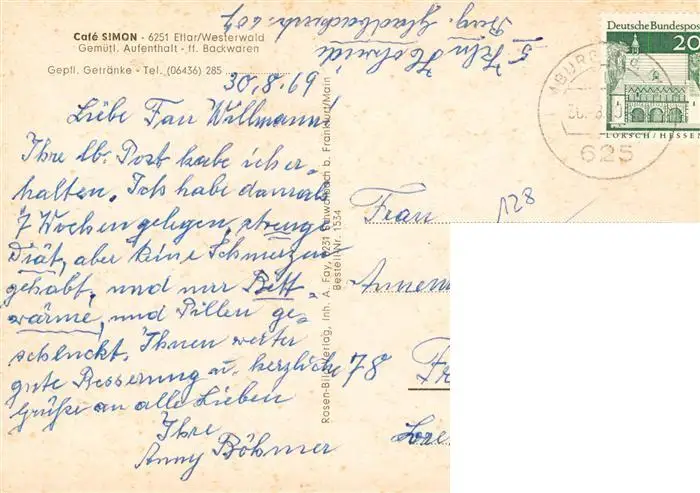 Café SIMON - 6251 Ellar/Westerwald
Gemütl. Aufenthalt - ff. Backwaren
Gepfl. Getränke - Tel. (06436) 285
30.8.69
Liebe Frau Willmann!
Ihre lb. Post habe ich er-
halten. Ich habe damals
7 Wochen gelegen, strenge
Diät, aber keine Schmerzen
gehabt, und nur Bett-
wärme, und Pillen ge-
schluckt. Ihnen weiter
gute Besserung u. herzliche
Grüße an alle Lieben
Ihre
Anny Böhmer
5 Kln
Rosen-Bildverlag, Inh. A. Fay, 6231 Schwalbach b. Frankfurt/Main
Bestell-Nr. 1534
Deutsche Bundespost
20
LORSCH/HESSEN
625
128
Frau
Annem
78 Fr